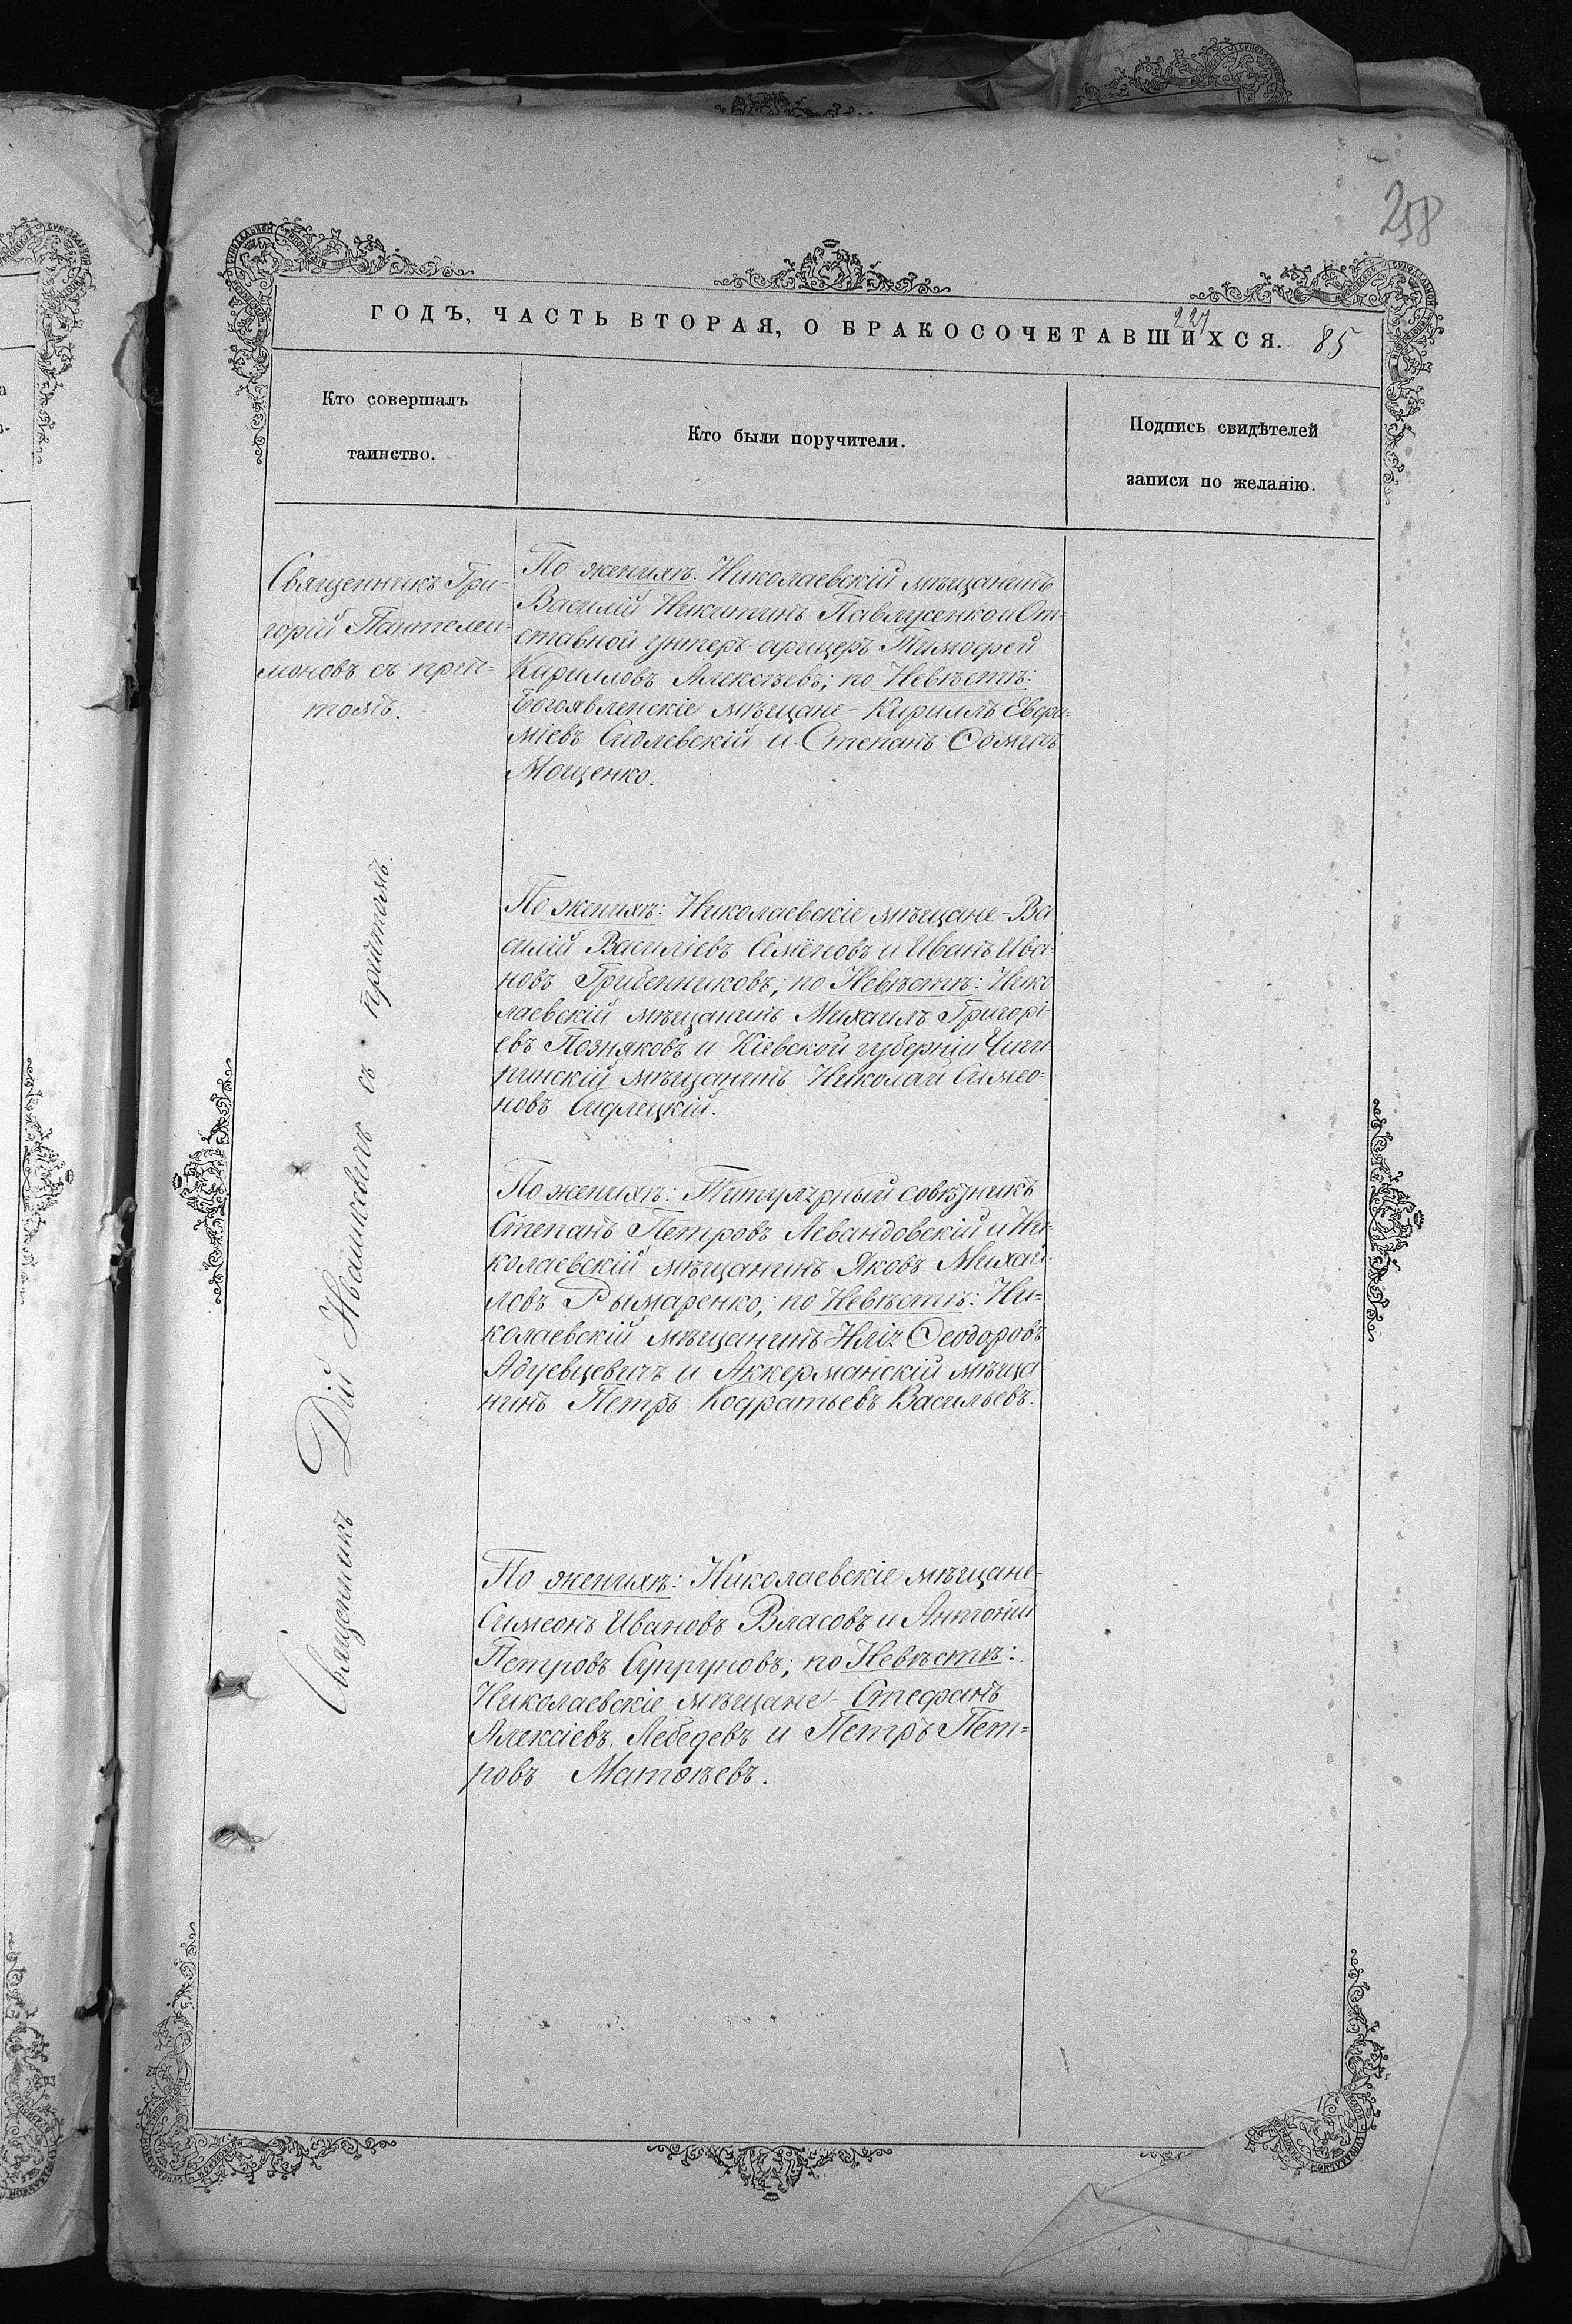 258
ГОДЪ, ЧАСТЬ ВТОРАЯ, О БРАКОСОЧЕТАВШИХСЯ.
227
85
Кто совершалъ
таинство.
Кто были поручители.
Подпись свидѣтелей
записи по желанію.
Священникъ Гри-
горій Пантелеи-
моновъ съ прич-
томъ.
По женихѣ: Николаевскій мѣщанинъ
Василій Никитинъ Павлусенко и От-
ставной унтеръ-офицеръ Тимофей
Кирилловъ Алексѣевъ; по Невѣстѣ:
Богоявленскіе мѣщане - Кириллъ Евфи-
міевъ Сидлевскій и Степанъ Ѳомичъ
Мощенко.
Священникъ Дій Ивашкевичъ съ причтомъ.
По женихѣ: Николаевскіе мѣщане - Ва
силій Василіевъ Семеновъ и Иванъ Ива-
новъ Грибенниковъ; по Невѣстѣ: Нико
лаевскій мѣщанинъ Михаилъ Григорі-
евъ Позняковъ и Кіевской губерніи Чиги-
ринскій мѣщанинъ Николай Симео-
новъ Сифлецкій.
По женихѣ: Титулярный совѣтникъ
Степанъ Петровъ Левандовскій и Ни-
колаевскій мѣщанинъ Яковъ Михай-
ловъ Рымаренко; по Невѣстѣ: Ни-
колаевскій мѣщанинъ Илія Ѳеодоровъ
и Аккерманскій мѣща-
нинъ Петръ Кодратьевъ Васильевъ.
По женихѣ: Николаевскіе мѣщане -
Симеонъ Ивановъ Власовъ и Антоній
Петровъ Супруновъ; по Невѣстѣ:
Николаевскіе мѣщане - Стефанъ
Алексіевъ Лебедевъ и Петръ Пет-
ровъ Матѳѣевъ.